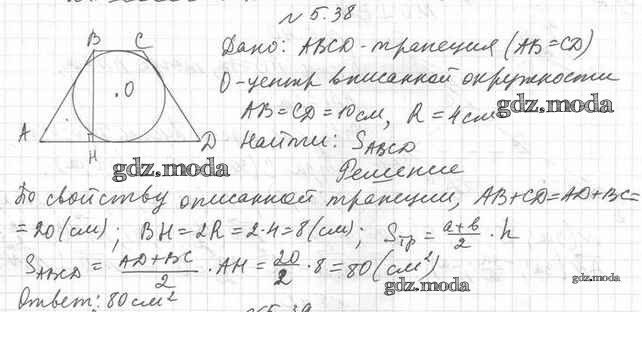 № 5.38
B C
Дано: ABCD - трапеция (AB = CD)
O
O - центр вписанной окружности
AB = CD = 10 см, R = 4 см
gdz.moda
A D
H
Найти: S_ABCD
gdz.moda
Решение
По свойству описанной трапеции, AB + CD = AD + BC =
= 20 (см); BH = 2R = 2·4 = 8 (см); S_тр = (a+b)/2 · h
S_ABCD = (AD + BC)/2 · AH = 20/2 · 8 = 80 (см²)
gdz.moda
gdz.moda
Ответ: 80 см²